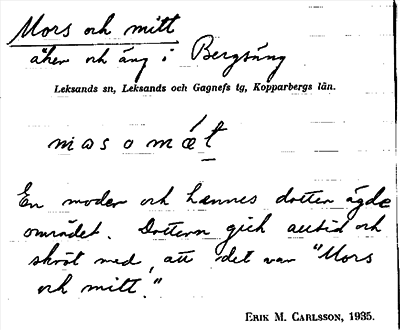 Mors och mitt
åker och äng i Bergsäng
Leksands sn, Leksands och Gagnefs tg, Kopparbergs län.
mɷs o mǽt
En moder och hennes dotter ägde
området. Dottern gick alltid och
skröt med, att det var "Mors
och mitt."
ERIK M. CARLSSON, 1935.